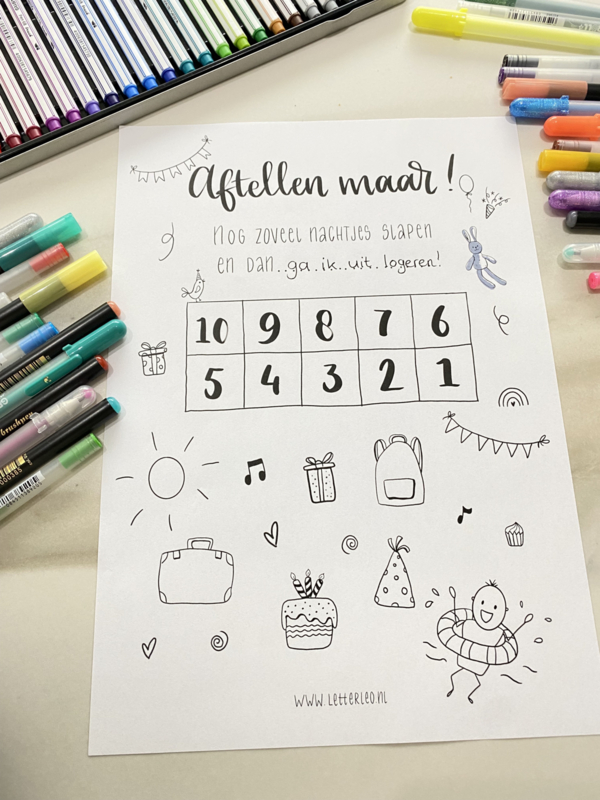 Aftellen maar!
NOG ZOVEEL NACHTJES SLAPEN
EN DAN..ga.ik..uit.logeren!
10 9 8 7 6
5 4 3 2 1
WWW.LETTERLEO.NL